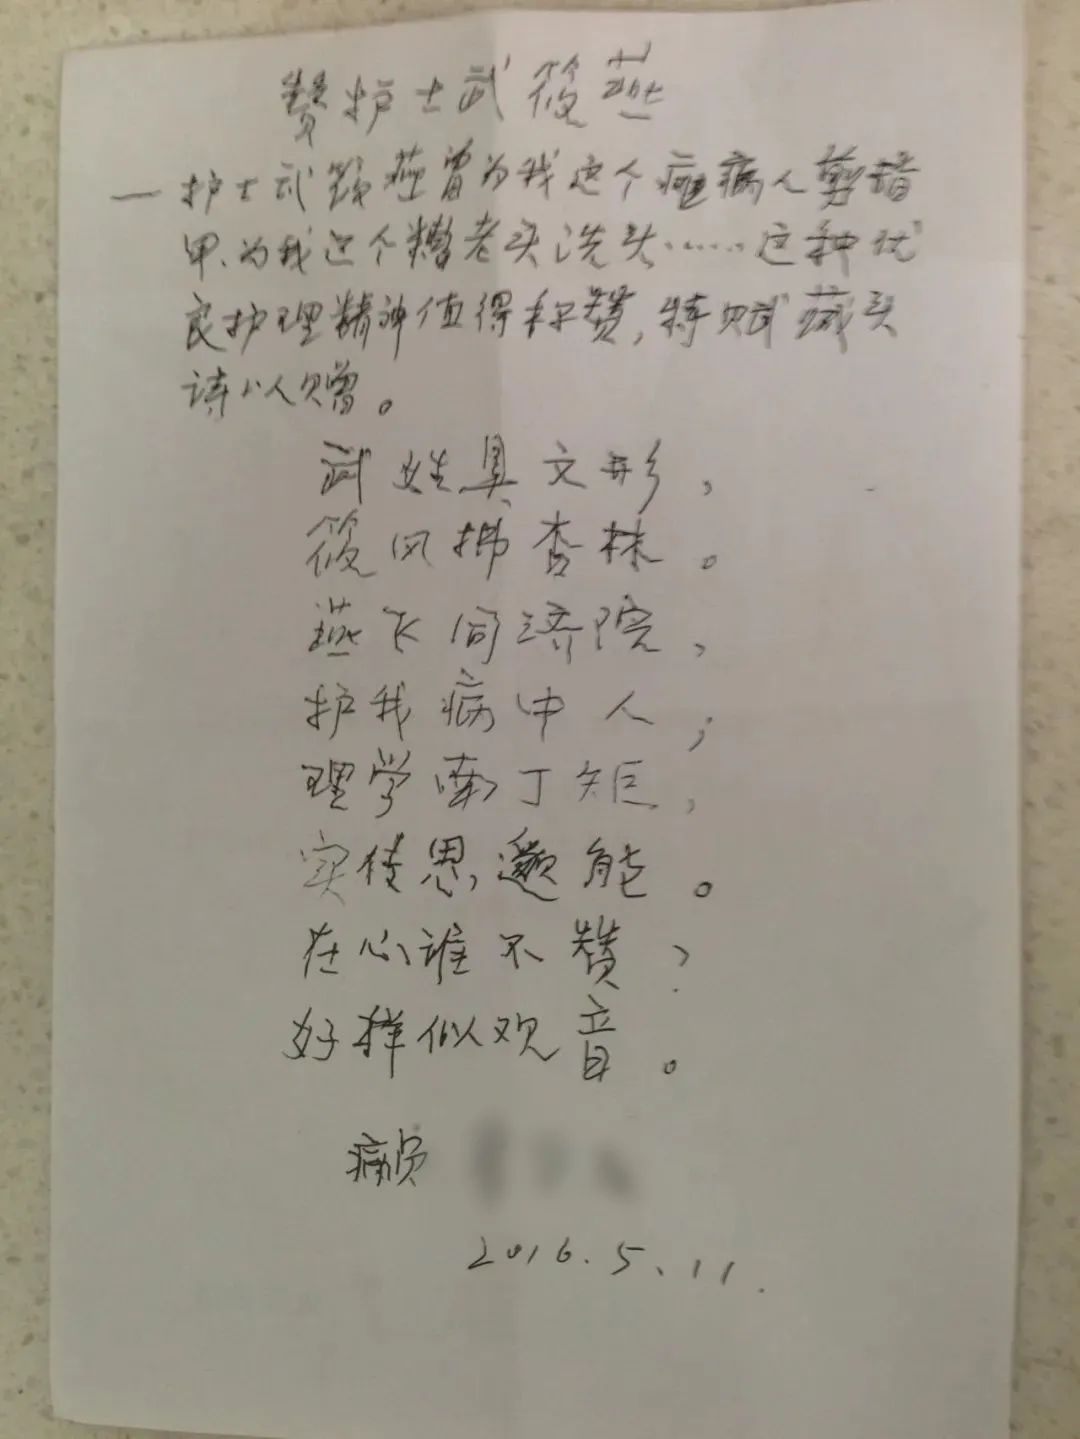 赞护士武筱燕
一护士武筱燕曾为我这个瘫病人剪指
甲、为我这个糟老头洗头……这种优
良护理精神值得称赞,特赋藏头
诗以赠。
武姓具文形,
筱风拂杏林。
燕飞同济院,
护我病中人;
理学南丁矩,
实传思邈能。
在心谁不赞,
好样似观音。
病员
2016.5.11.